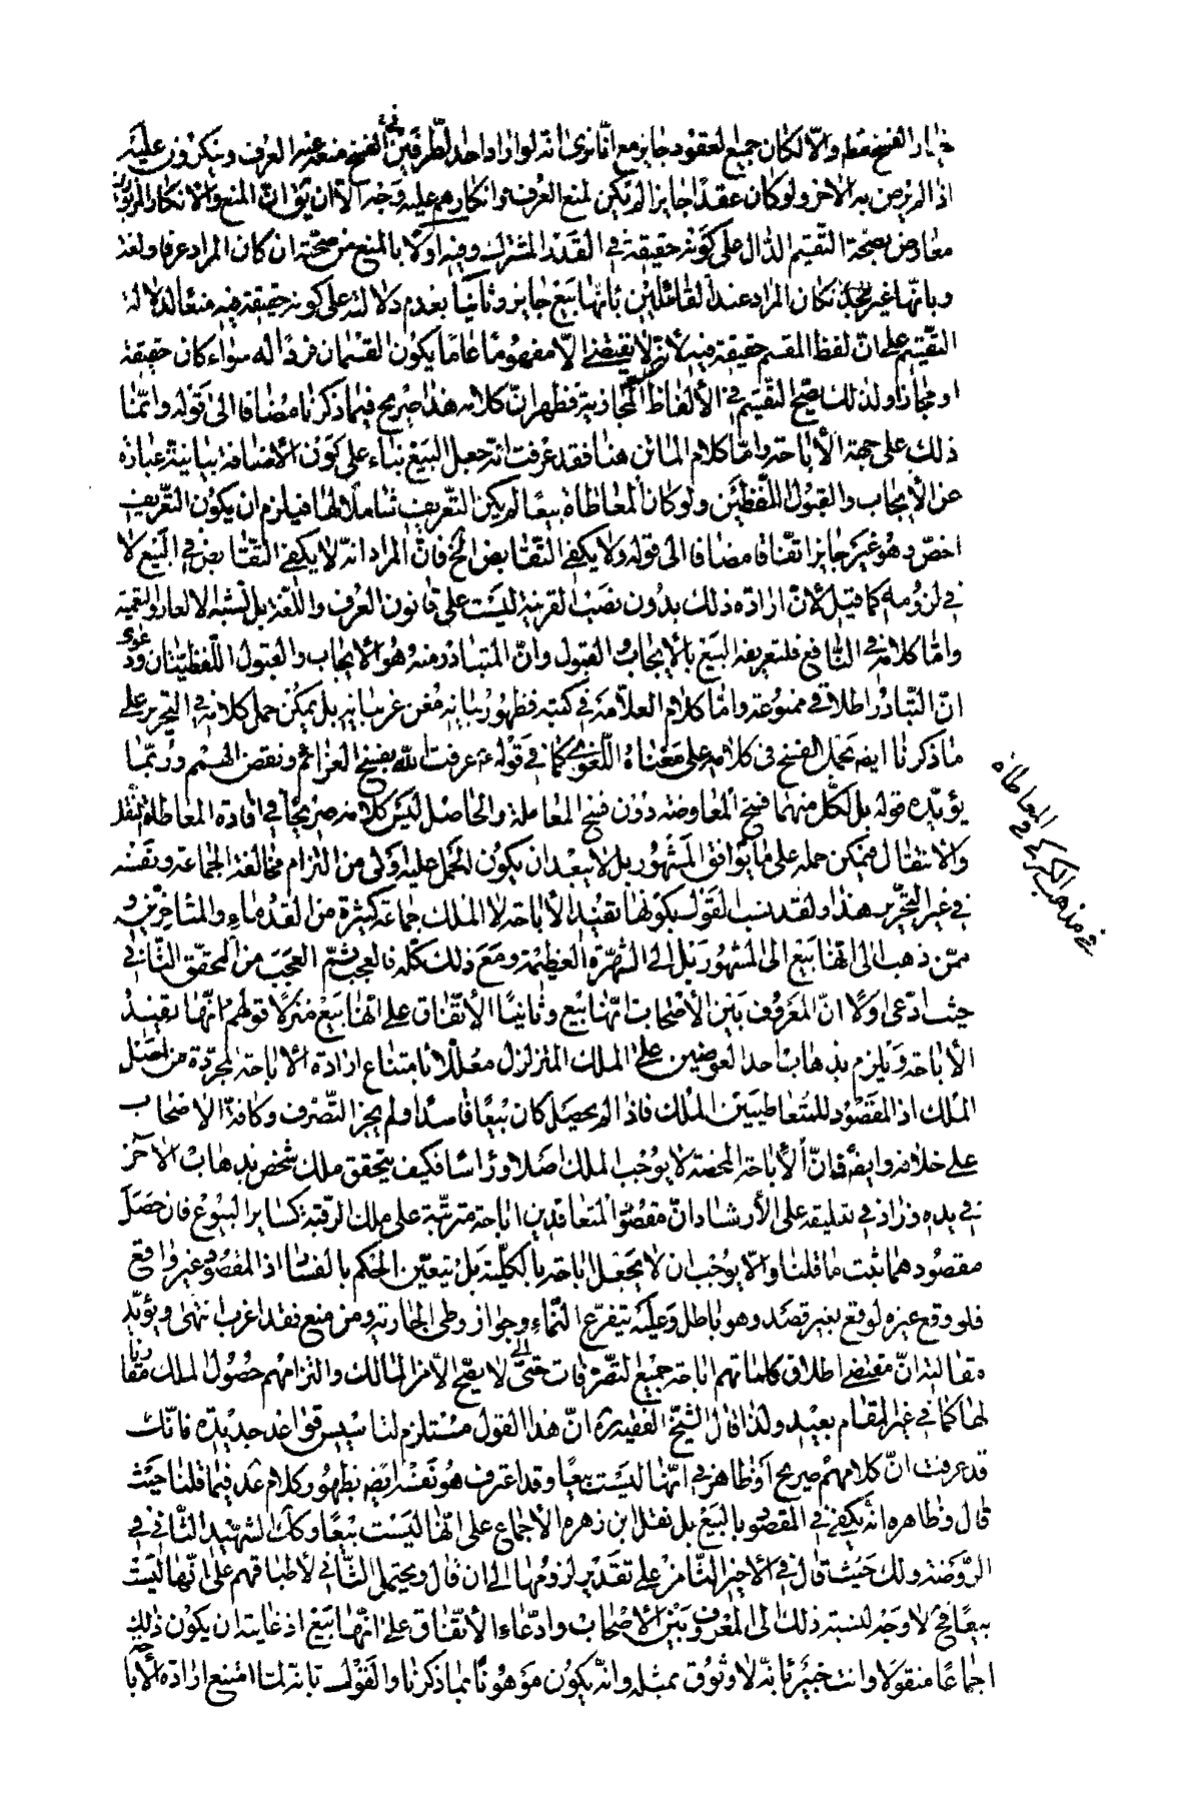 خيار الفسخ فقط والّا لكان جميع العقود جايز مع انّا نرى انّه لو اراد احد الطّرفين الفسخ منعه عنه العرف وينكرون عليه
اذا لم يرض به الاخر ولو كان عقدًا جايزا لم يكن لمنع العرف وانكارهم عليه وجه الّا ان يق انّ المنع والانكار المزبورين
معارض بصحّة التّقسيم الدّال على كونه حقيقة في القدر المشترك وفيه اولًا بالمنع من صحّته ان كان المراد عرفا ولغة
وبانّها غير مجد ان كان المراد عند القائلين بانّها بيع جايز وثانيًا بعدم دلالته على كونه حقيقة فيه منعًا لدلالة
التّقسيم على انّ لفظ المقسم حقيقة فيه لانّه لا يقتضى الّا مفهومًا عامًا يكون القسمان فردًا له سواء كان حقيقة
او مجازًا ولذلك صحّ التّقسيم في الألفاظ المجازية فظهر انّ كلامه هذا صريح فيما ذكرنا مضافا الى قوله وانّما
ذلك على جهة الأباحة وامّا كلام الماتن هنا فقد عرفت انّه جعل البيع بناء على كون الأضافة بيانيّة عبارة
عن الأيجاب والقبول اللّفظيّين ولو كان المعاطاة بيعًا لم يكن التّعريف شاملًا لها فيلزم ان يكون التّعريف
اخصّ وهو غير جايز اتّفاقا مضافا الى قوله ولا يكفى التّقابض الخ فانّ المراد انّه لا يكفى التّقابض في البيع لا
في لزومه كما قيل لانّ ارادة ذلك بدون نصب القرينة ليست على قانون العرف واللّغة بل تشبه الالغاز والتعمية
وامّا كلامه في النّافع فلتعريفه البيع بالأيجاب والقبول وانّ المتبادر منه هو الأيجاب والقبول اللّفظيّان ودعوى
انّ التّبادر اطلاقى ممنوعة وامّا كلام العلّامة في كتبه فظهور بيانه مغن عن بيانه بل يمكن حمل كلامه في التّحرير على
ما ذكرنا ايضً بحمل الفسخ فى كلامه على معناه اللّغوى كما في قوله ع عرفت اللّه بفسخ العزائم ونقض الهمم وربّما
يؤيّده قوله بل لكلّ منهما فسخ المعاوضة دون فسخ المعاملة والحاصل ليس كلامه صريحًا في افادة المعاطاة النقل
والانتقال فيمكن حمله على ما يوافق المشهور بل لا يبعد ان يكون الحمل عليه اولى من التزام مخالفة الجماعة ونفسه
في غير التّحرير هذا ولقد نسب القول بكونها تفيد الأباحة لا الملك جماعة كثيرة من القدماء والمتاخرين و
ممّن ذهب الى انّها بيع الى المشهور بل الى الشّهرة العظيمة ومع ذلك كلّه فالعجب ثمّ العجب من المحقّق الثّاني
حيث ادّعى اولًا انّ المعروف بين الأصحاب انّها بيع وثانيًا الأتّفاق على انّها بيع منزلًا قولهم انّها تفيد
الأباحة ويلزم بذهاب احد العوضين على الملك المتزلزل معلّلًا بامتناع ارادة الأباحة المجرّدة من اصل
الملك اذ المقصود للمتعاطيين الملك فاذا لم يحصل كان بيعًا فاسدًا ولم يجز التّصرف وكافة الاصحاب
على خلافه وايضً فانّ الأباحة المحضة لا يوجب الملك اصلا وراسًا فكيف يتحقق ملك شخص بذهاب الآخر
في يده وزاد في تعليقه على الأرشاد انّ مقصود المتعاقدين اباحة مترتّبة على ملك الرقبة كساير البيوع فان حصل
مقصودهما ثبت ما قلنا والّا يوجب ان لا يحصل اباحة بالكلّية بل يتعيّن الحكم بالفساد اذ المقصود غير واقع
فلو وقع غيره لوقع بغير قصد وهو باطل وعليه يتفرّع النّماء وجواز وطى الجارية ومن منع فقد اغرب انتهى ويؤيّد
مقالته انّ مقتضى اطلاق كلماتهم اباحة جميع التّصرّفات حتّى الّتى لا يصحّ الّا من المالك والتزامهم حصول الملك مقارنا
لها كما في غير المقام بعيد ولذا قال الشيخ الفقيه ره انّ هذا القول مستلزم لتاسيس قواعد جديدة فانّك
قد عرفت انّ كلامهم صريح او ظاهر في انّها ليست بيعًا وقد اعترف هو نفسه ايضً بظهور كلام عد فيما قلنا حيث
قال وظاهره انّه يكفى في المقصود بالبيع بل نقل ابن زهره الأجماع على انّها ليست بيعًا وكذا الشهيد الثّاني في
الرّوضة ولك حيث قال في الأخير الثّامن على تقدير لزومها الى ان قال ويحتمل الثّاني لاطباقهم على انّها ليست
بيعًا فحً لا وجه لنسبة ذلك الى المعروف بين الأصحاب وادّعاء الأتّفاق على انّها بيع اذ غايته ان يكون ذلك
اجماعًا منقولا وانت خبير بانّه لا وثوق بمثله وانّه يكون موهونًا بما ذكرنا والقول بانّه لمّا امتنع ارادة الأباحة
في مذهب الكركي في المعاطاة